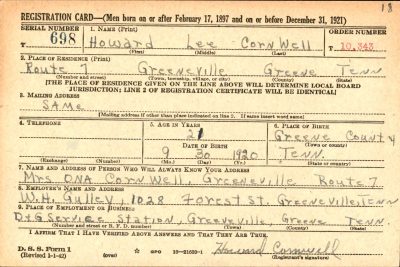 18
REGISTRATION CARD—(Men born on or after February 17, 1897 and on or before December 31, 1921)
SERIAL NUMBER 1. NAME (Print) ORDER NUMBER
698 Howard Lee CornWell 10,343
(First) (Middle) (Last)
2. PLACE OF RESIDENCE (Print)
Route 7 Greeneville Greene Tenn
(Number and street) (Town, township, village, or city) (County) (State)
[THE PLACE OF RESIDENCE GIVEN ON THE LINE ABOVE WILL DETERMINE LOCAL BOARD
JURISDICTION; LINE 2 OF REGISTRATION CERTIFICATE WILL BE IDENTICAL]
3. MAILING ADDRESS
SAMe
[Mailing address if other than place indicated on line 2. If same insert word same]
4. TELEPHONE 5. AGE IN YEARS 6. PLACE OF BIRTH
21 Greene County
DATE OF BIRTH (Town or county)
9 30 1920 Tenn.
(Exchange) (Number) (Mo.) (Day) (Yr.) (State or country)
7. NAME AND ADDRESS OF PERSON WHO WILL ALWAYS KNOW YOUR ADDRESS
Mrs ONA CornWell, Greeneville Route 7
8. EMPLOYER'S NAME AND ADDRESS
W.H. Gulley, 1028 Forest St. Greeneville, Tenn
9. PLACE OF EMPLOYMENT OR BUSINESS
D+G Service Station, Greeneville, Greene Tenn.
(Number and street or R. F. D. number) (Town) (County) (State)
I AFFIRM THAT I HAVE VERIFIED ABOVE ANSWERS AND THAT THEY ARE TRUE.
D. S. S. Form 1
(Revised 1-1-42) (over) Howard Cornwell
(Registrant's signature)